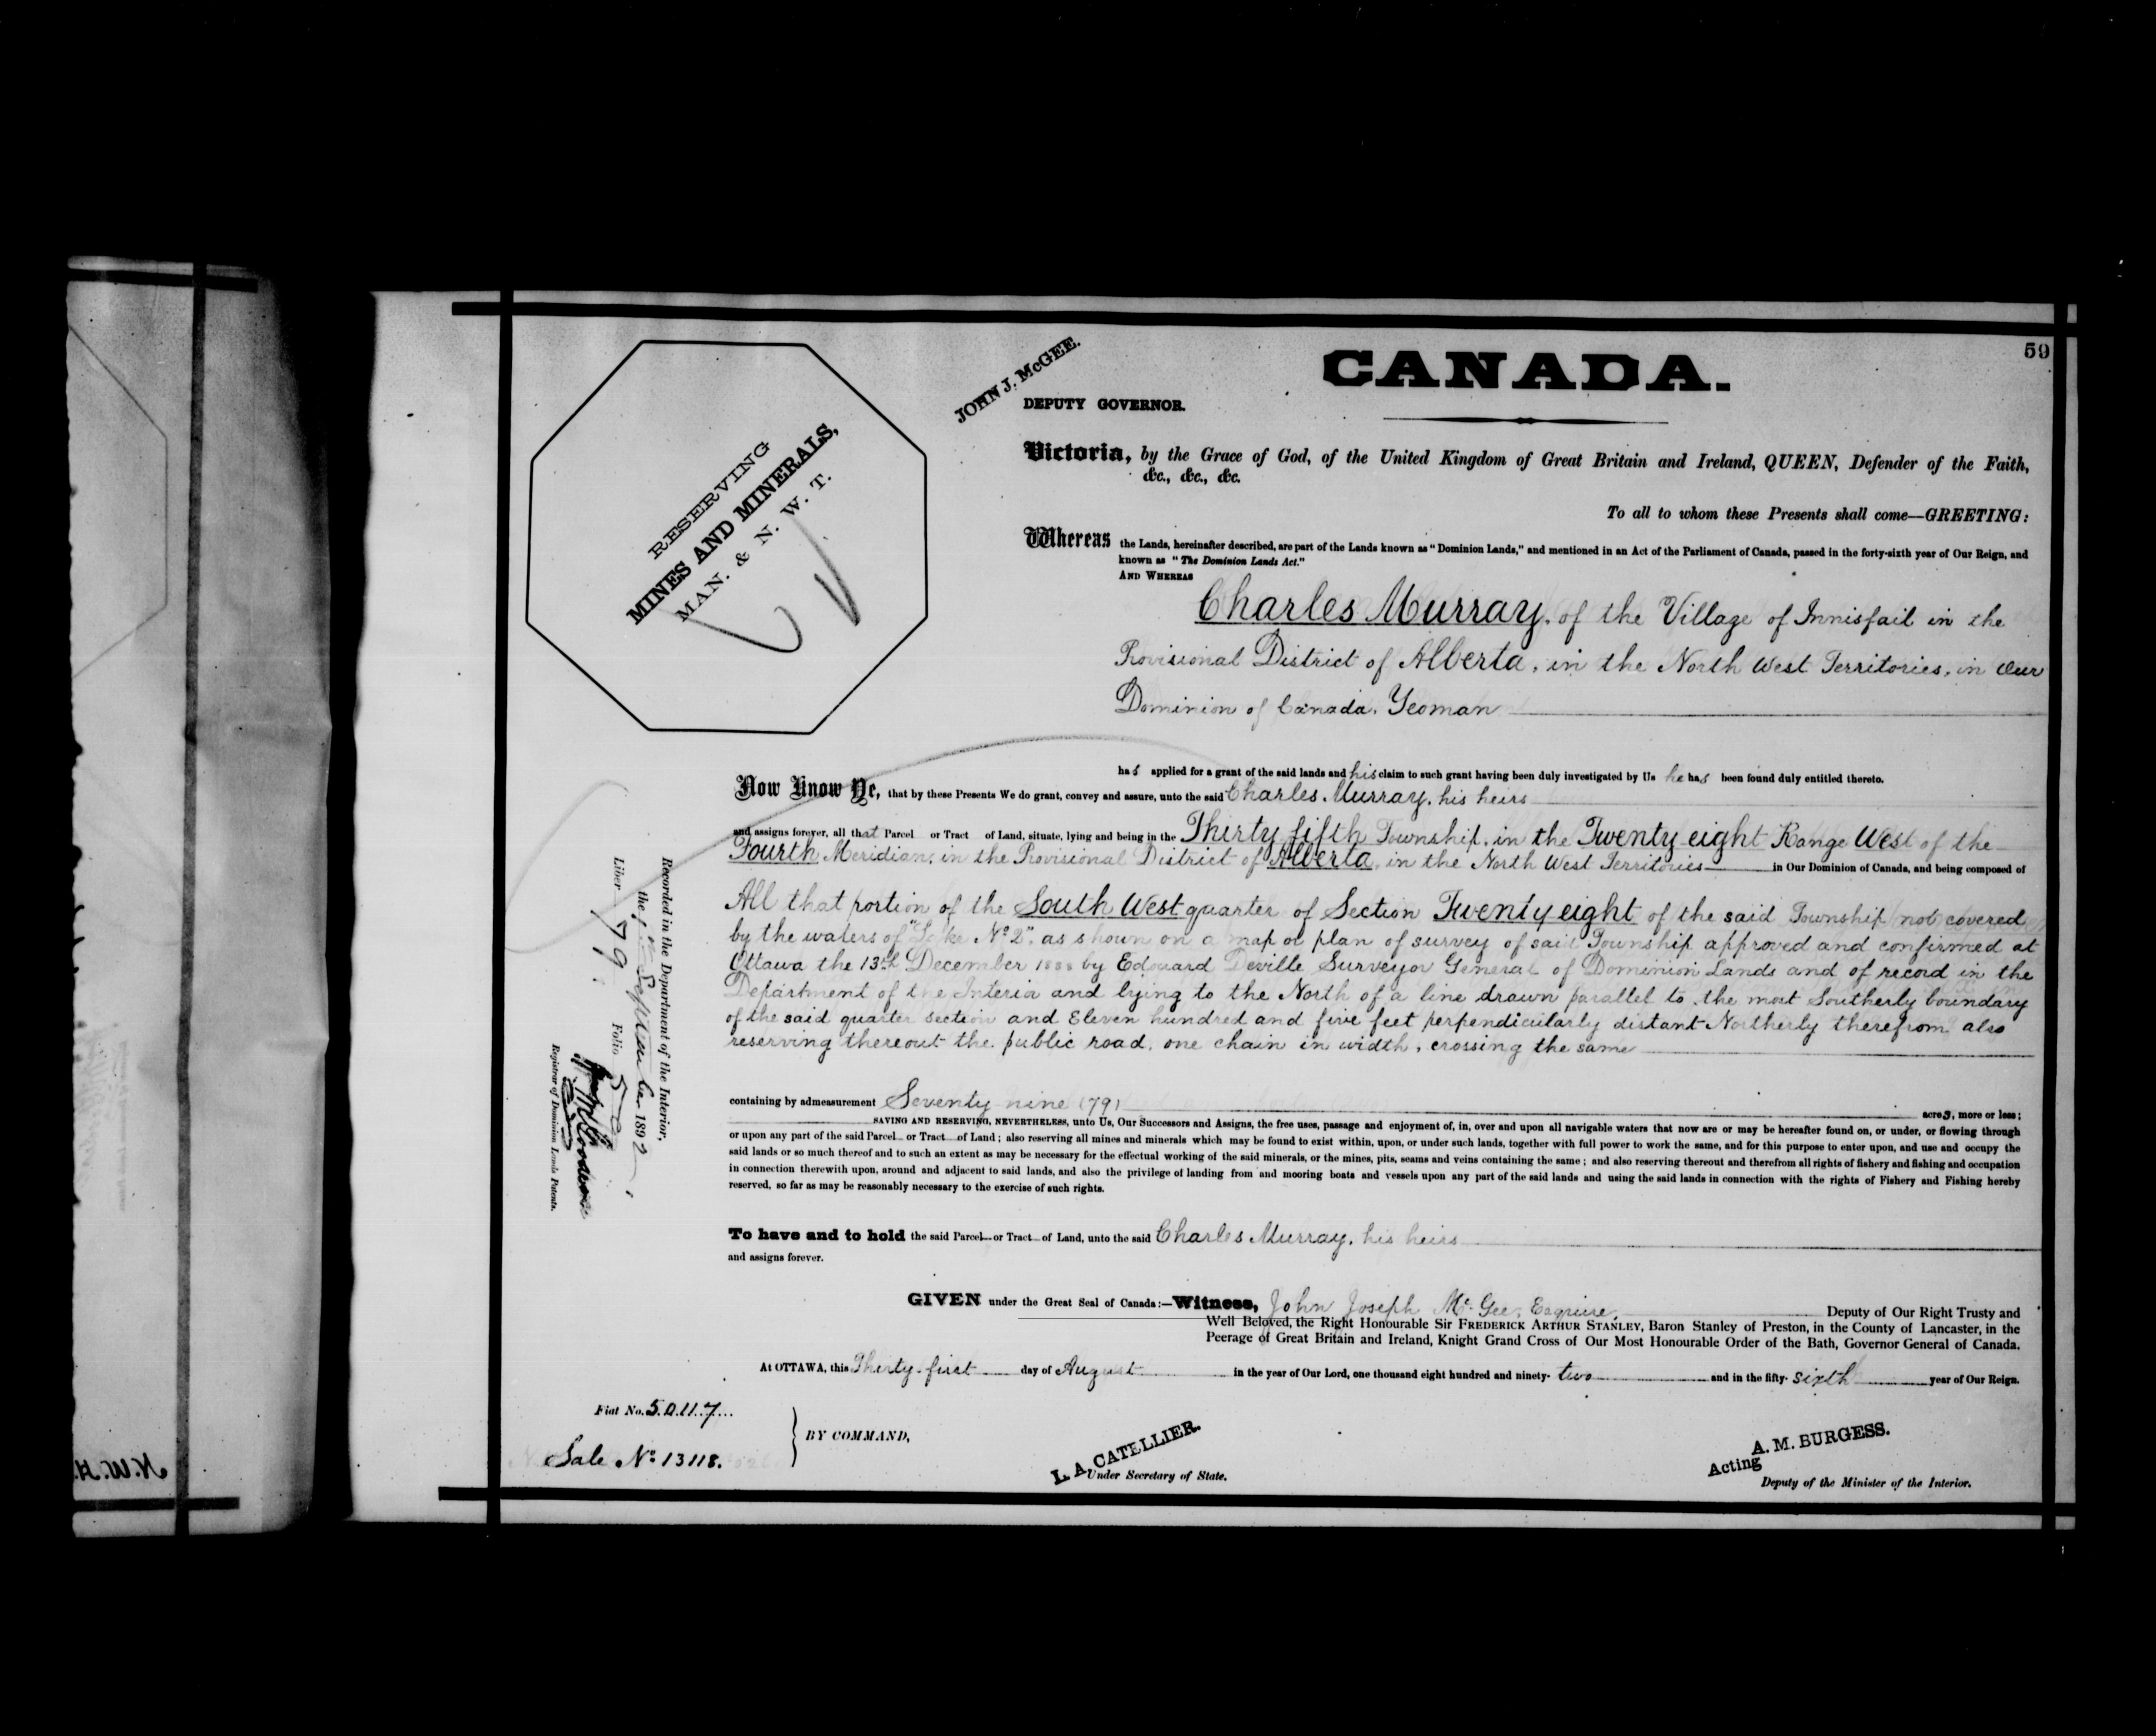 59
CANADA.
JOHN J. McGEE.
DEPUTY GOVERNOR.
RESERVING
MINES AND MINERALS,
MAN. & N. W. T.
Victoria, by the Grace of God, of the United Kingdom of Great Britain and Ireland, QUEEN, Defender of the Faith,
&c., &c., &c.
To all to whom these Presents shall come—GREETING:
Whereas the Lands, hereinafter described, are part of the Lands known as "Dominion Lands," and mentioned in an Act of the Parliament of Canada, passed in the forty-sixth year of Our Reign, and
known as "The Dominion Lands Act."
AND WHEREAS
Charles Murray, of the Village of Innisfail in the
Provisional District of Alberta, in the North West Territories, in Our
Dominion of Canada, Yeoman
has applied for a grant of the said lands and his claim to such grant having been duly investigated by Us he has been found duly entitled thereto.
Now Know Ye, that by these Presents We do grant, convey and assure, unto the said Charles Murray, his heirs
and assigns forever, all that Parcel or Tract of Land, situate, lying and being in the Thirty fifth Township, in the Twenty eight Range West of the
Fourth Meridian, in the Provisional District of Alberta, in the North West Territories in Our Dominion of Canada, and being composed of
All that portion of the South West quarter of Section Twenty eight of the said Township not covered
by the waters of "Lake No 2", as shown on a map or plan of survey of said Township approved and confirmed at
Ottawa the 13th December 1888 by Edouard Deville Surveyor General of Dominion Lands and of record in the
Department of the Interior and lying to the North of a line drawn parallel to the most Southerly boundary
of the said quarter section and Eleven hundred and five feet perpendicularly distant Northerly therefrom also
reserving thereout the public road, one chain in width, crossing the same
containing by admeasurement Seventy nine (79) acres, more or less;
SAVING AND RESERVING, NEVERTHELESS, unto Us, Our Successors and Assigns, the free uses, passage and enjoyment of, in, over and upon all navigable waters that now are or may be hereafter found on, or under, or flowing through
or upon any part of the said Parcel or Tract of Land; also reserving all mines and minerals which may be found to exist within, upon, or under such lands, together with full power to work the same, and for this purpose to enter upon, and use and occupy the
said lands or so much thereof and to such an extent as may be necessary for the effectual working of the said minerals, or the mines, pits, seams and veins containing the same; and also reserving thereout and therefrom all rights of fishery and fishing and occupation
in connection therewith upon, around and adjacent to said lands, and also the privilege of landing from and mooring boats and vessels upon any part of the said lands and using the said lands in connection with the rights of Fishery and Fishing hereby
reserved, so far as may be reasonably necessary to the exercise of such rights.
To have and to hold the said Parcel or Tract of Land, unto the said Charles Murray, his heirs
and assigns forever.
GIVEN under the Great Seal of Canada:—Witness, John Joseph McGee, Esquire, Deputy of Our Right Trusty and
Well Beloved, the Right Honourable Sir FREDERICK ARTHUR STANLEY, Baron Stanley of Preston, in the County of Lancaster, in the
Peerage of Great Britain and Ireland, Knight Grand Cross of Our Most Honourable Order of the Bath, Governor General of Canada.
At OTTAWA, this Thirty-first day of August in the year of Our Lord, one thousand eight hundred and ninety-two and in the fifty-sixth year of Our Reign.
Fiat No. 50117
Sale No 13118.
BY COMMAND,
L. A. CATELLIER.
Under Secretary of State.
A. M. BURGESS.
Acting
Deputy of the Minister of the Interior.
Recorded in the Department of the Interior,
the September 1892
Liber 79 Folio
Registrar of Dominion Lands Patents.